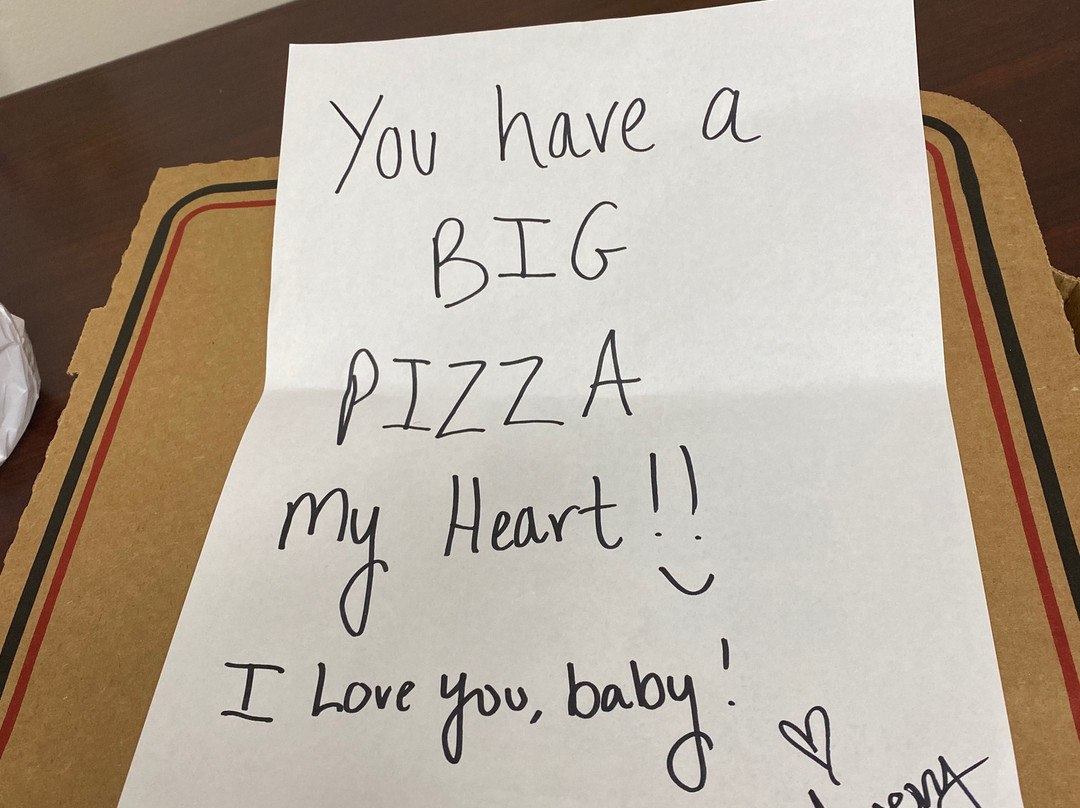 You have a
BIG
PIZZA
My Heart!!
I Love you, baby!